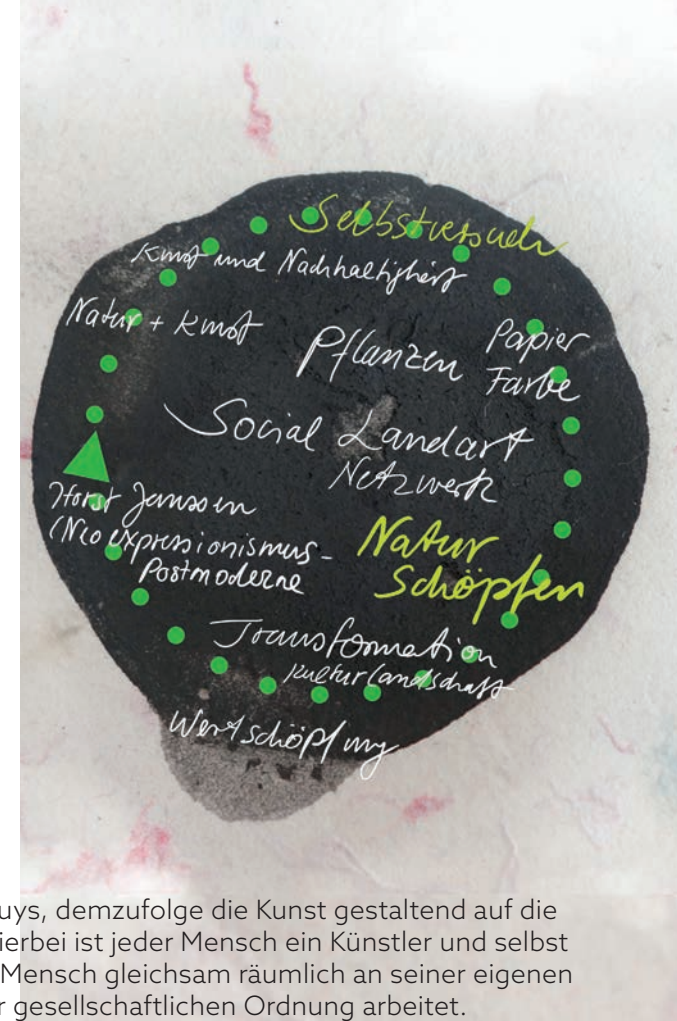 Selbstversuch
Kunst und Nachhaltigkeit
Natur + Kunst
Pflanzen
Papier
Farbe
Social Landart
Netzwerk
Horst Janssen
(Neo expressionismus -
Postmoderne
Natur
Schöpfen
Transformation
Kulturlandschaft
Wertschöpfung
uys, demzufolge die Kunst gestaltend auf die
ierbei ist jeder Mensch ein Künstler und selbst
Mensch gleichsam räumlich an seiner eigenen
r gesellschaftlichen Ordnung arbeitet.